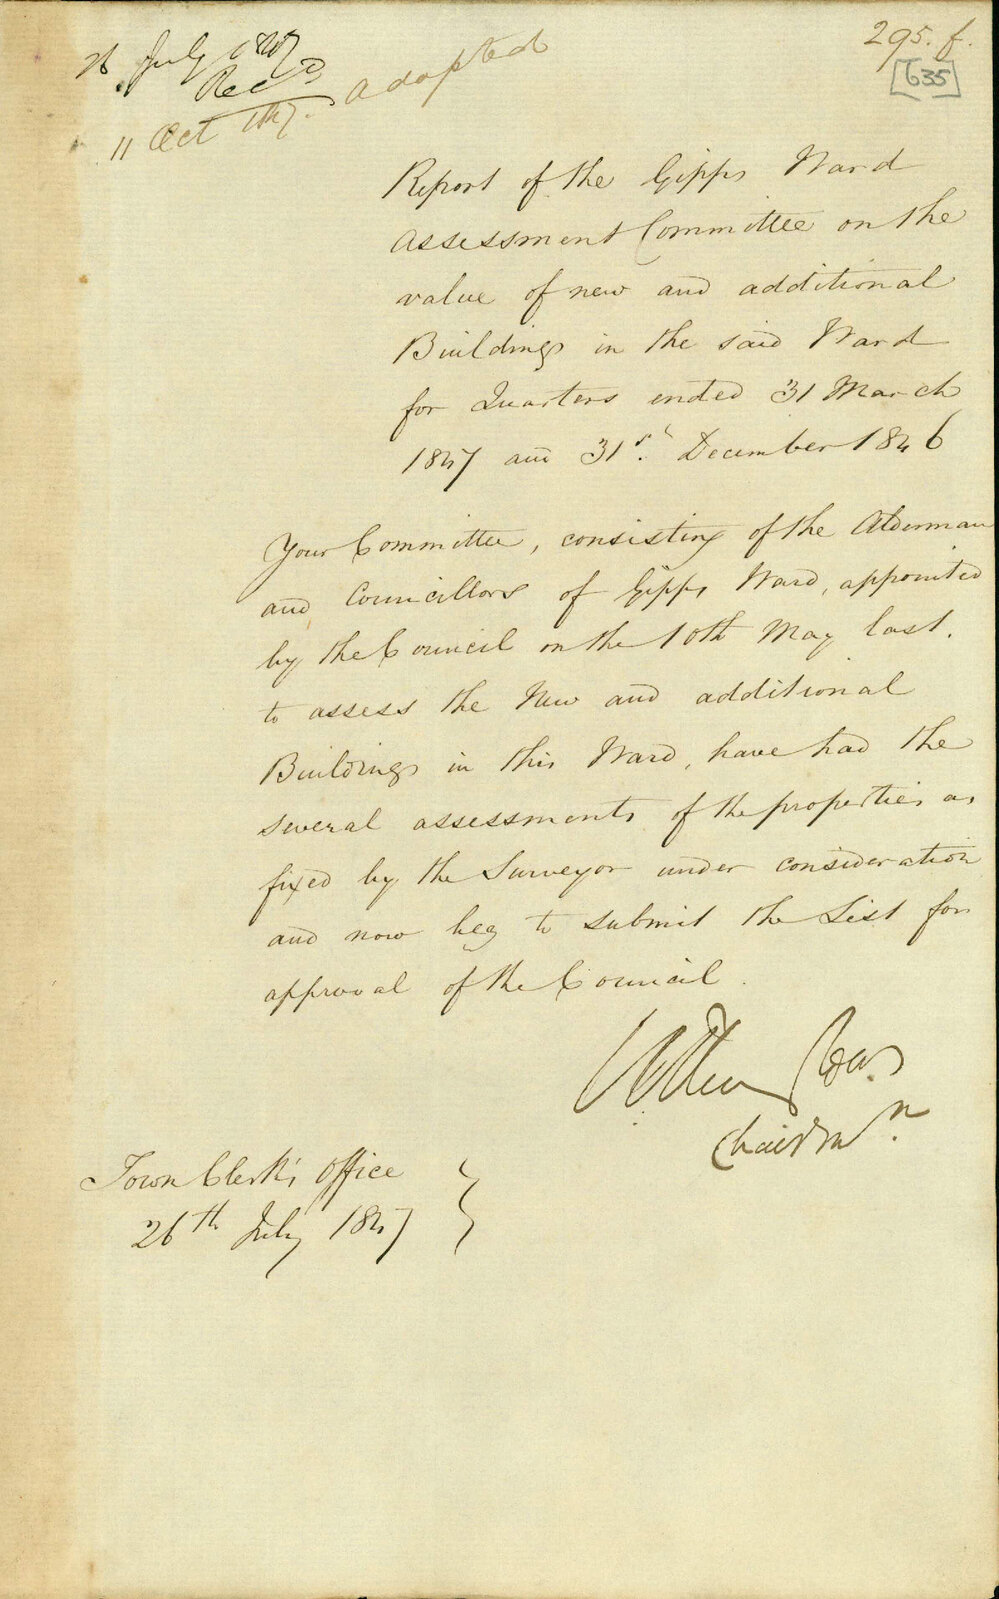 26 July 1847
Recd
11 Oct 1847. adopted
295. f.
[635]
Report of the Gipps Ward
Assessment Committee on the
value of new and additional
Buildings in the said Ward
for Quarters ended 31 March
1847 and 31st. December 1846
Your Committee, consisting of the Alderman
and Councillors of Gipps Ward, appointed
by the Council on the 10th May last.
to assess the New and additional
Buildings in this Ward, have had the
several assessments of the properties as
fixed by the Surveyor under consideration
and now beg to submit the List for
approval of the Council.
Chairmn.
Town Clerk's Office
26th July 1847